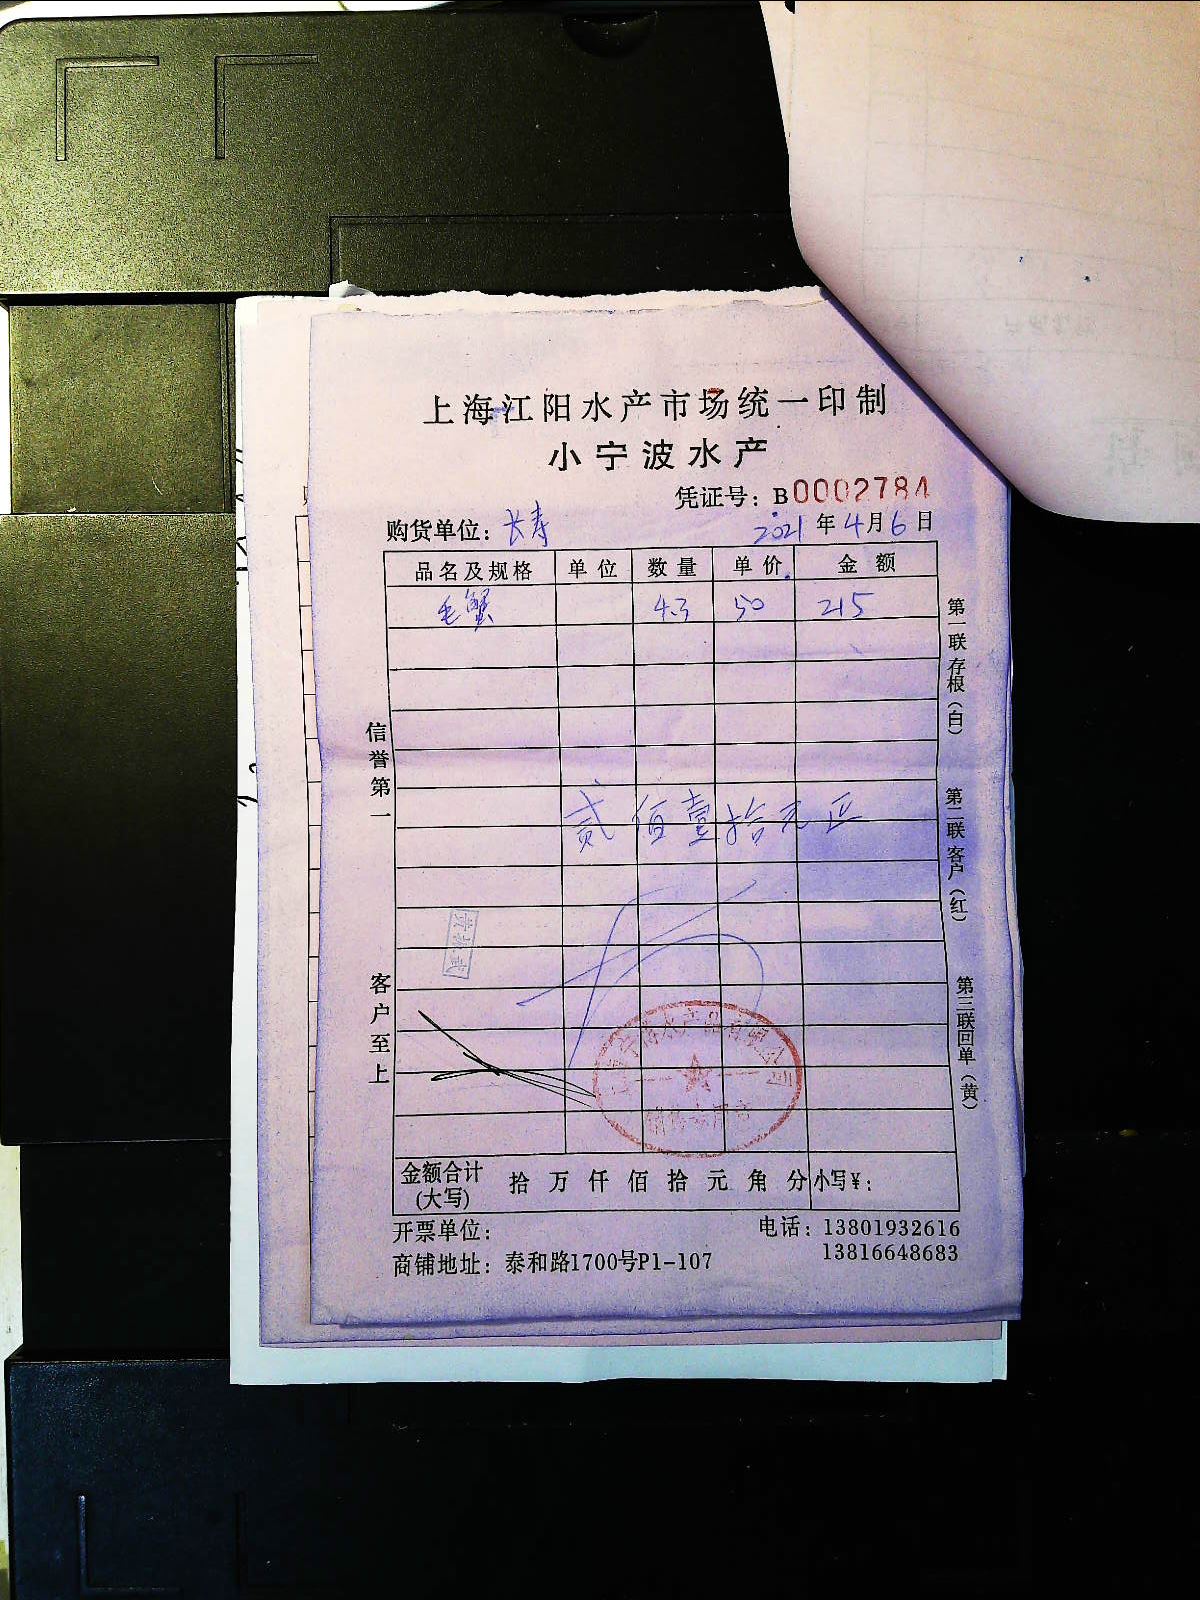 上海江阳水产市场统一印制
小宁波水产
凭证号：B0002784
购货单位：长寿 2021年4月6日
品名及规格 单位 数量 单价 金额
毛蟹 4.3 50 215
贰佰壹拾元正
信誉第一
客户至上
第一联存根（白）
第二联客户（红）
第三联回单（黄）
金额合计（大写） 拾 万 仟 佰 拾 元 角 分 小写￥：
开票单位： 电话：13801932616
13816648683
商铺地址：泰和路1700号P1-107